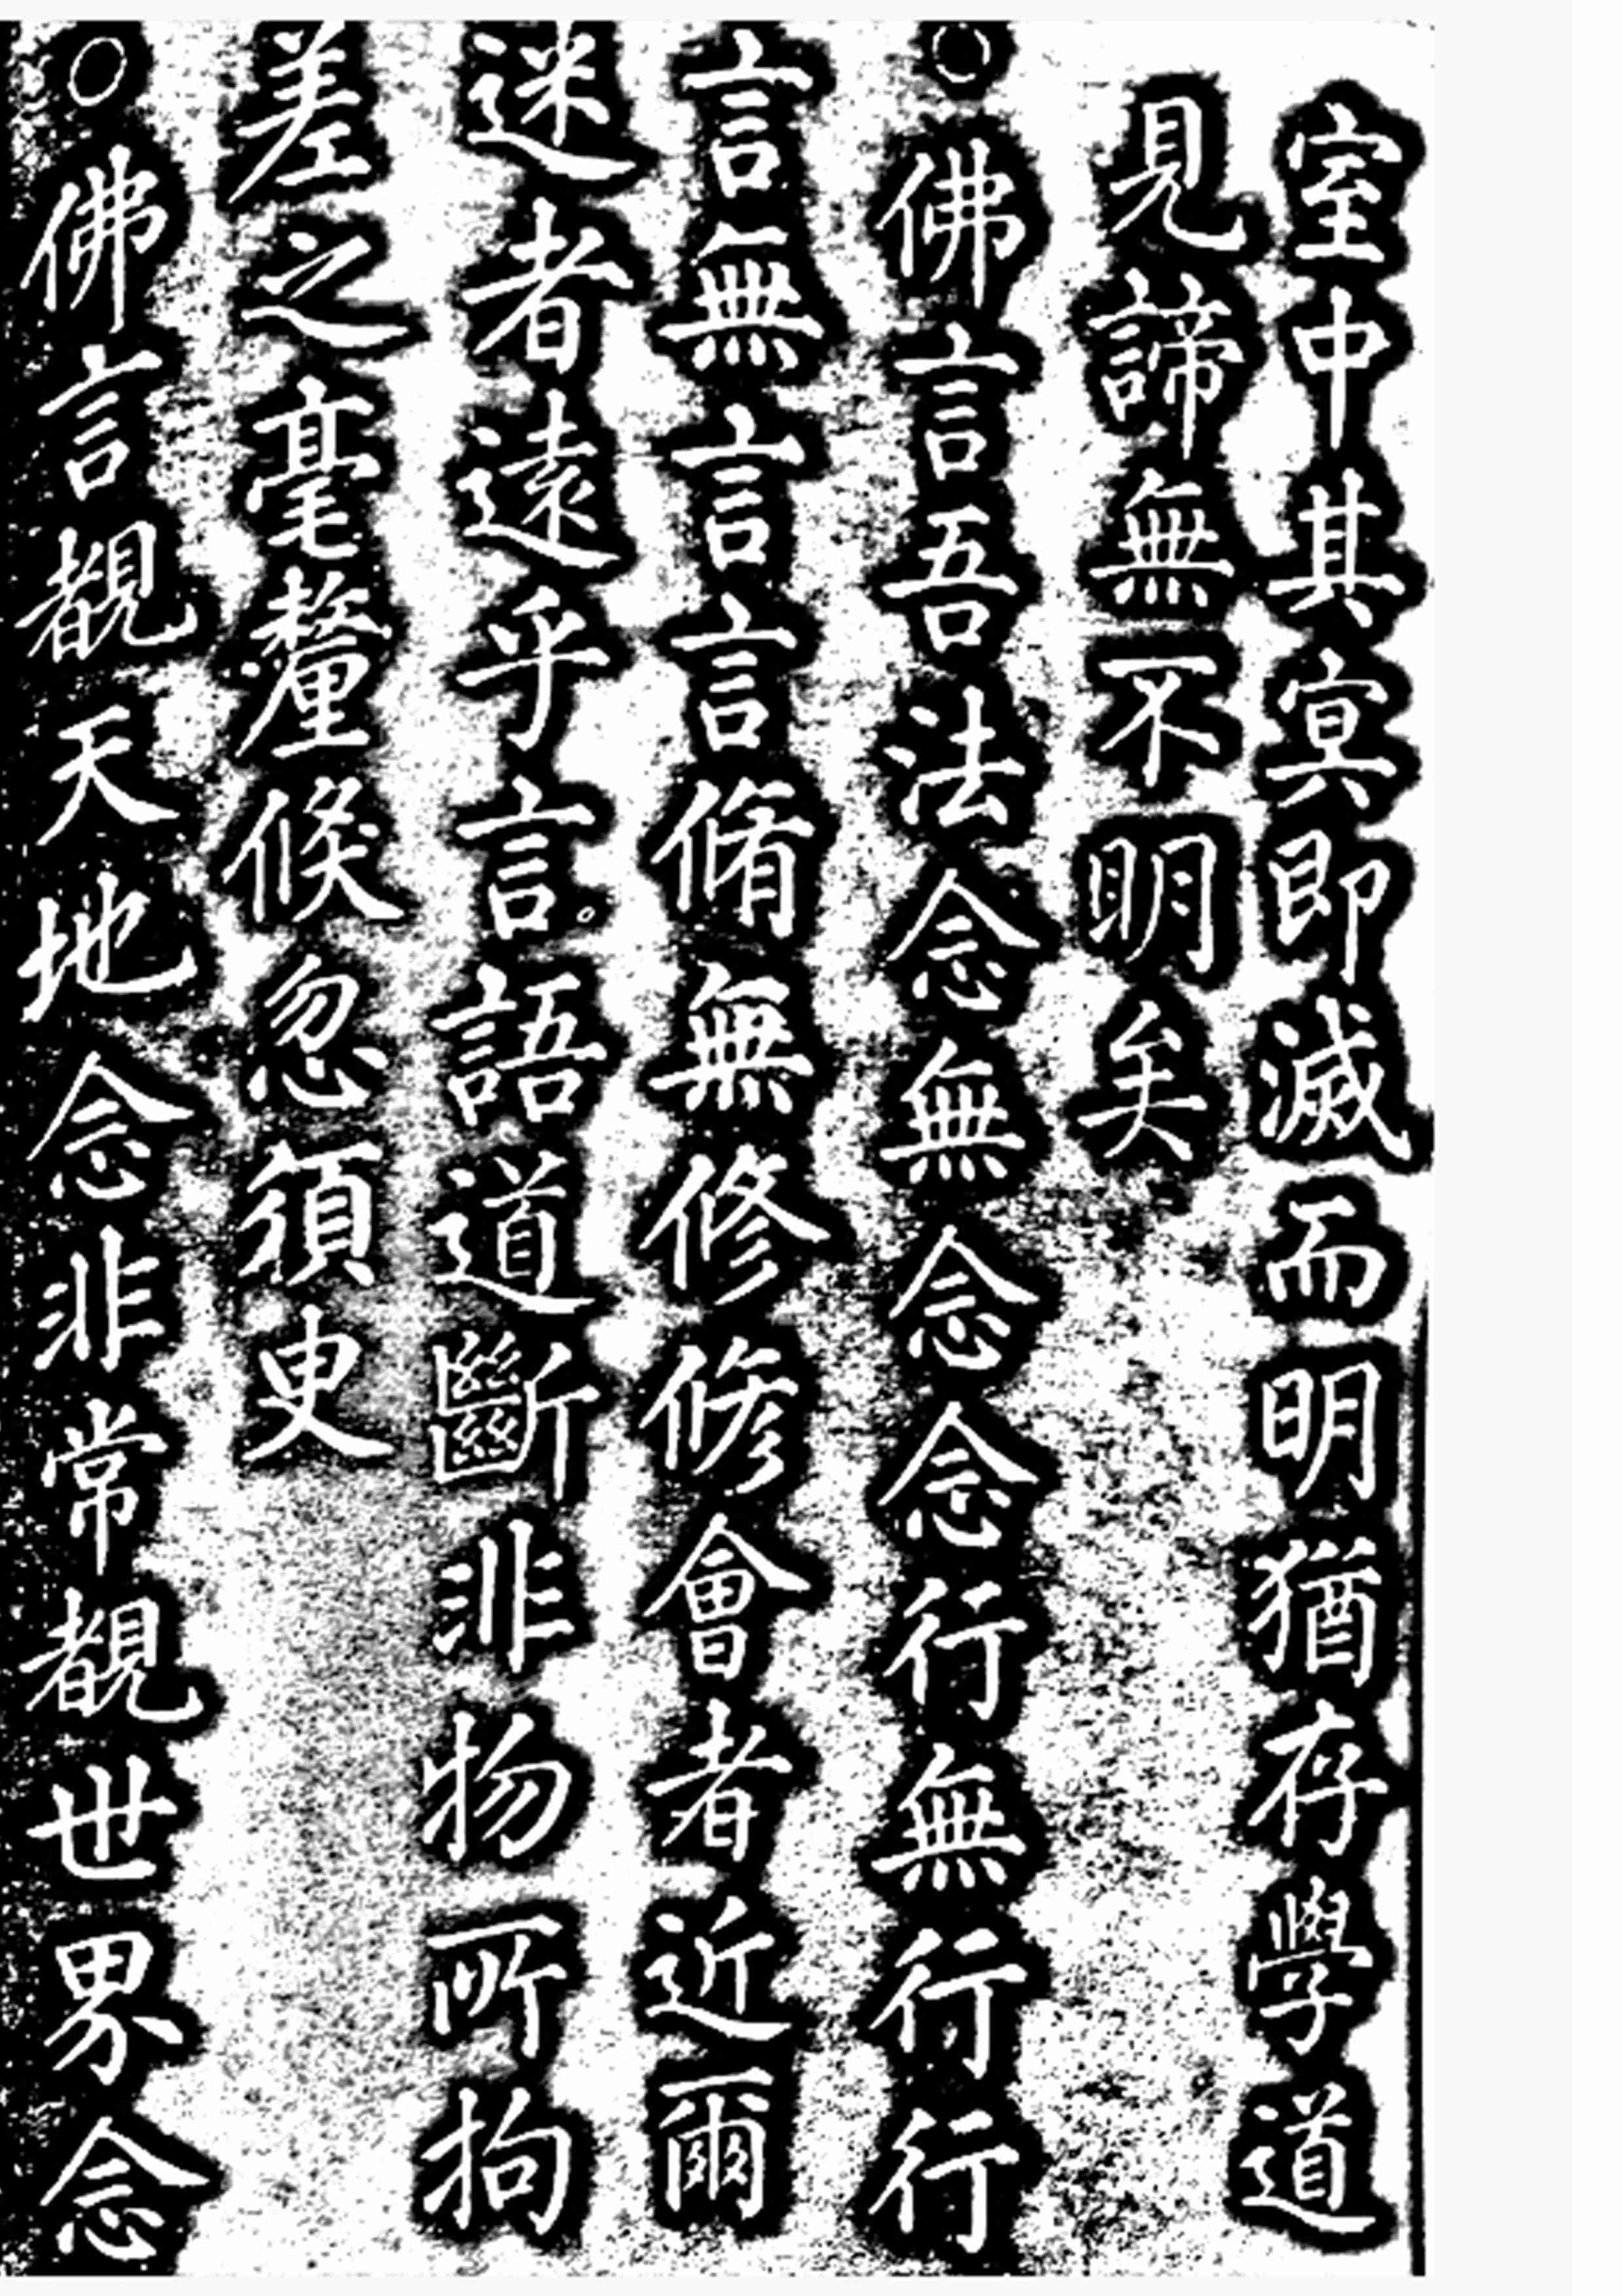 室中其冥即滅而明猶存學道
見諦無不明矣
○佛言吾法念無念念行無行行
言無言言脩無修修會者近爾
迷者遠乎言。語道斷非物所拘
差之毫釐倏忽須臾
○佛言覩天地念非常覩世界念